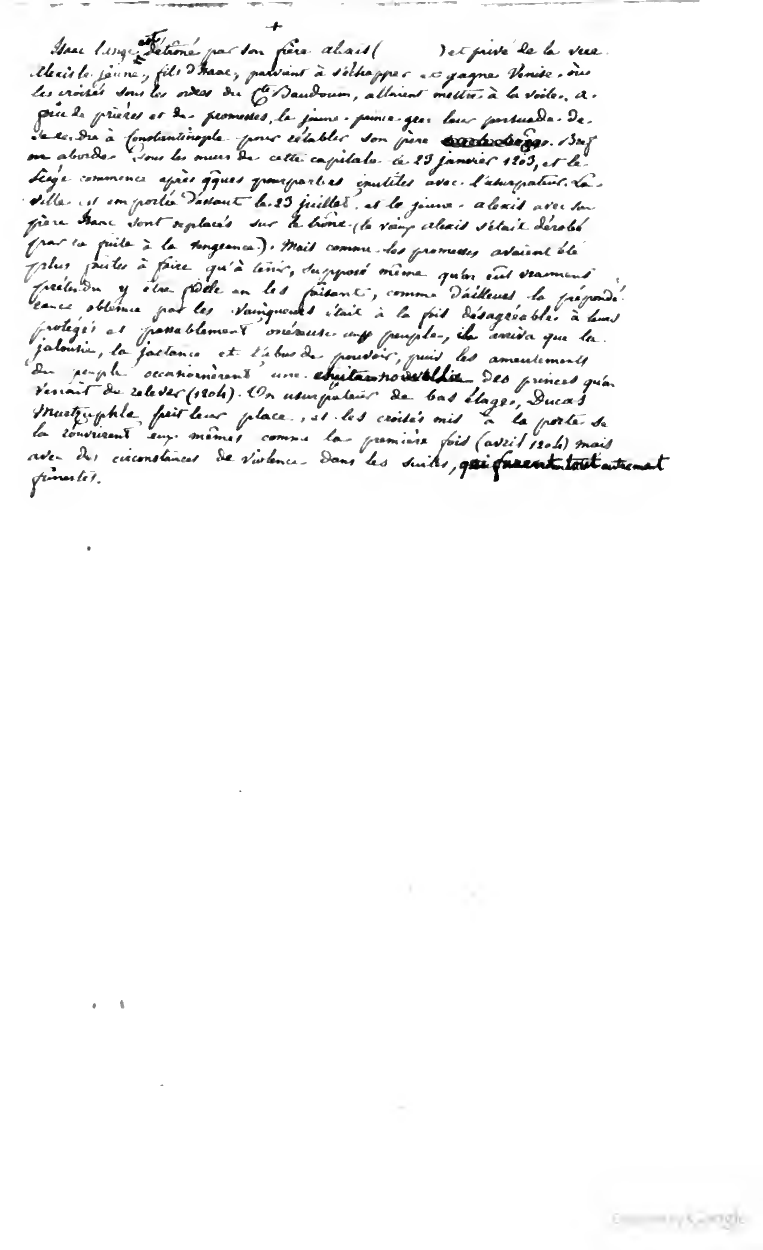 +
Isaac l'ange est détrôné par son frère alexis ( ) et privé de la vue.
Alexis le jeune, fils d'Isaac, parvient à s'échapper et gagne Venise où
les croisés sous les ordres du Cte Baudouin, allaient mettre à la voile. A
de prières et de promesses, le jeune prince grec leur persuade de
se rendre à Constantinople pour rétablir son père. Bref
on aborde sous les murs de cette capitale le 23 janvier 1203, et le
siège commence après qques pourparlers inutiles avec l'usurpateur. La
ville est emportée d'assaut le 23 juillet, et le jeune alexis avec son
père Isaac sont replacés sur le trône (le vieux alexis s'était dérobé
par la fuite à la vengeance). Mais comme les promesses avaient été
plus faciles à faire qu'à tenir, supposé même qu'on eût vraiment
prétendu y être fidèle en les faisant, comme d'ailleurs la prépondé
rance obtenue par les vainqueurs était à la fois désagréable à leurs
protégés et passablement onéreuse aux peuples, il arriva que la
jalousie, la jactance et l'abus de pouvoir, puis les ameutements
du peuple occasionnèrent une des princes qu'on
venait de relever (1204). Un usurpateur de bas étage, Ducas
Murtzuphle prit leur place, et les croisés mis à la porte se
la rouvrirent eux mêmes comme la première fois (avril 1204) mais
avec des circonstances de violence dans les suites, qui furent tout autrement
funestes.
Google